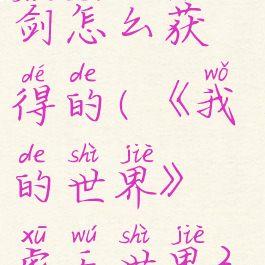 剑怎么获
dé de wǒ
得的(《我
de shì jiè
的世界》
xū wú shì jiè
世界